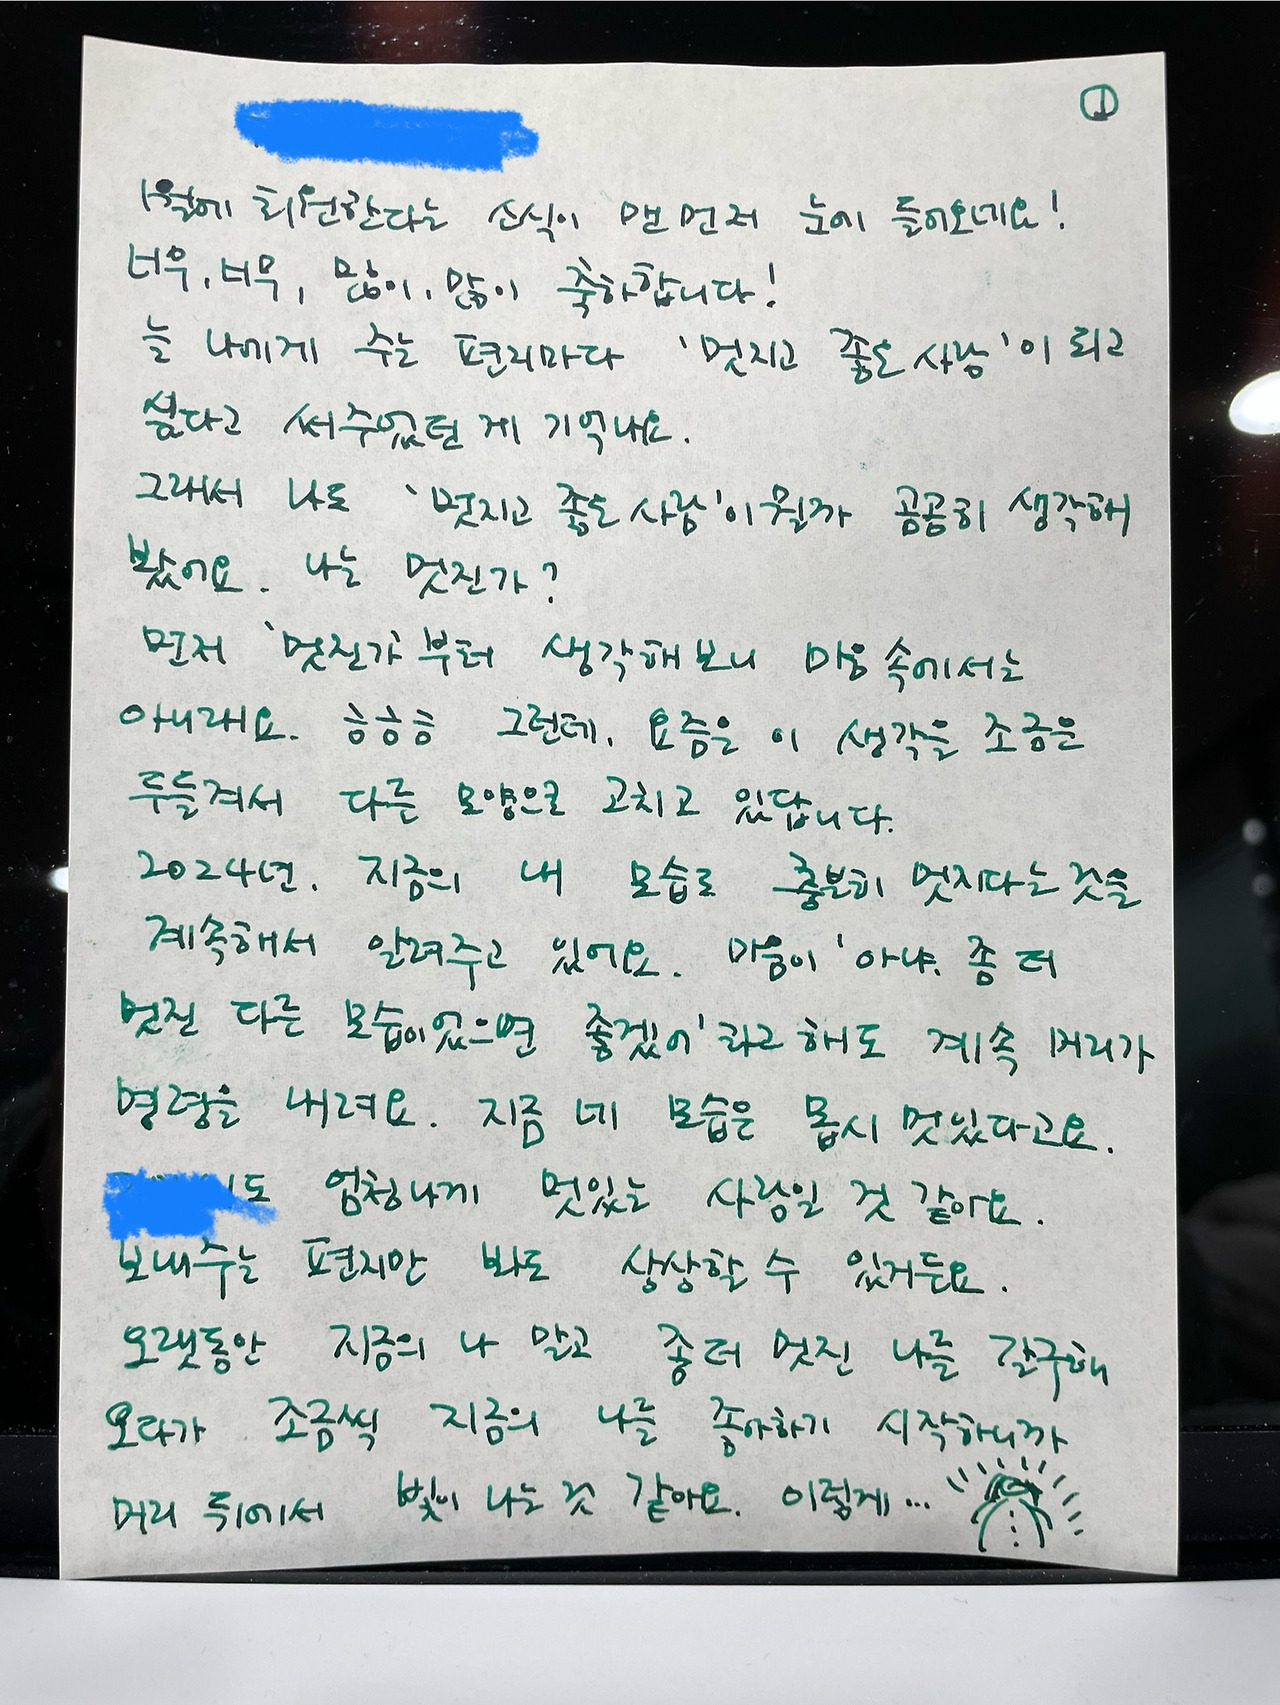 ①
1월에 회원한다는 소식이 맨 먼저 눈에 들어오네요!
너무, 너무, 많이, 많이 축하합니다!
늘 나에게 주는 편지마다 '멋지고 좋은 사람'이 되고
싶다고 써주었던 게 기억나요.
그래서 나도 '멋지고 좋은 사람'이 뭘까 곰곰히 생각해
봤어요. 나는 멋진가?
먼저 '멋진가'부터 생각해보니 마음 속에서는
아니래요. 흐흐흐 그런데, 요즘은 이 생각을 조금은
두들겨서 다른 모양으로 고치고 있답니다.
2024년. 지금의 내 모습도 충분히 멋지다는 것을
계속해서 알려주고 있어요. 마음이 '아냐. 좀 더
멋진 다른 모습이었으면 좋겠어'라고 해도 계속 머리가
명령을 내려요. 지금 네 모습은 몹시 멋있다고요.
도 엄청나게 멋있는 사람일 것 같아요.
보내주는 편지만 봐도 상상할 수 있거든요.
오랫동안 지금의 나 말고 좀 더 멋진 나를 갈구해
오다가 조금씩 지금의 나를 좋아하기 시작하니까
머리 뒤에서 빛이 나는 것 같아요. 이렇게...